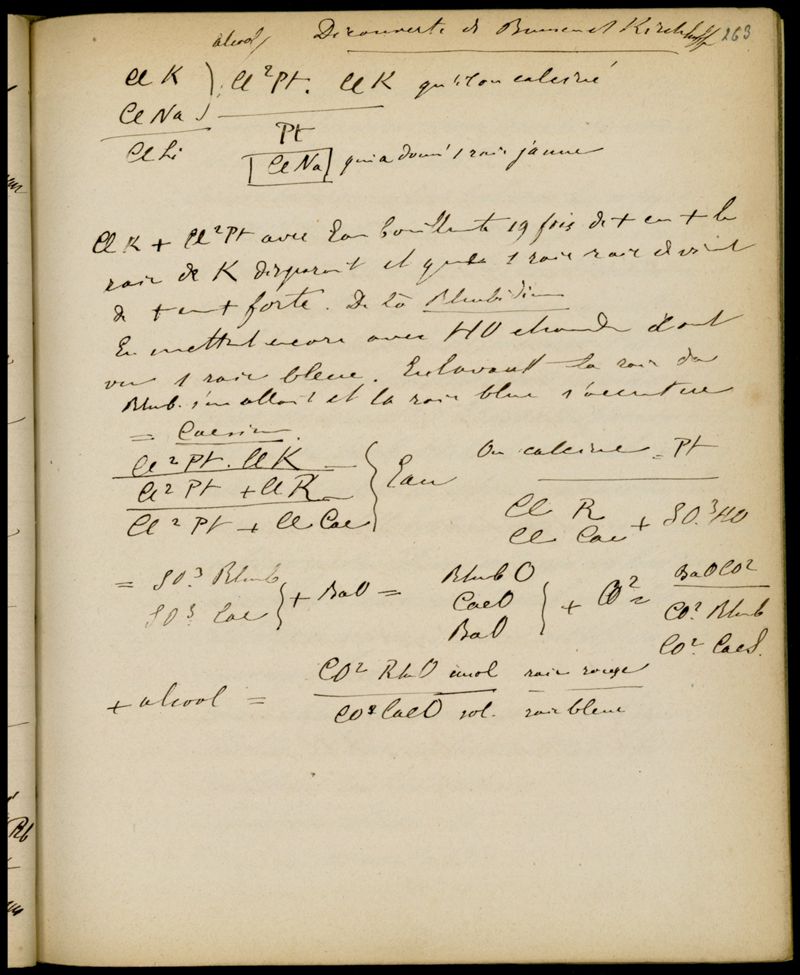 alcool Découverte de Bunsen et Kirchhoff 263
Cl K } Cl²Pt. Cl K qu'on calciné
Cl Na
Cl Li Pt
Cl Na qui a donné 1 raie jaune
Cl K + Cl²Pt avec Eau bouillante 19 fois de + en + la
raie de K disparait et 1 raie devient
de + en + forte. De là Rhubidium
En mettant encore avec HO chaude dont
vu 1 raie bleue. En lavant la raie du
Rhub. s'en allait et la raie bleue s'accentue
= Caesium.
Cl²Pt. Cl K } Eau On calcine = Pt
Cl²Pt + Cl R
Cl²Pt + Cl Cae
Cl R
Cl Cae + SO³HO
= SO³ Rhub } + BaO = RhubO } + CO² = BaOCO²
SO³ Cae CaeO CO² Rhub
BaO CO² CaeS.
+ alcool = CO² RhO insol raie rouge
CO² CaeO sol. raie bleue
Rb